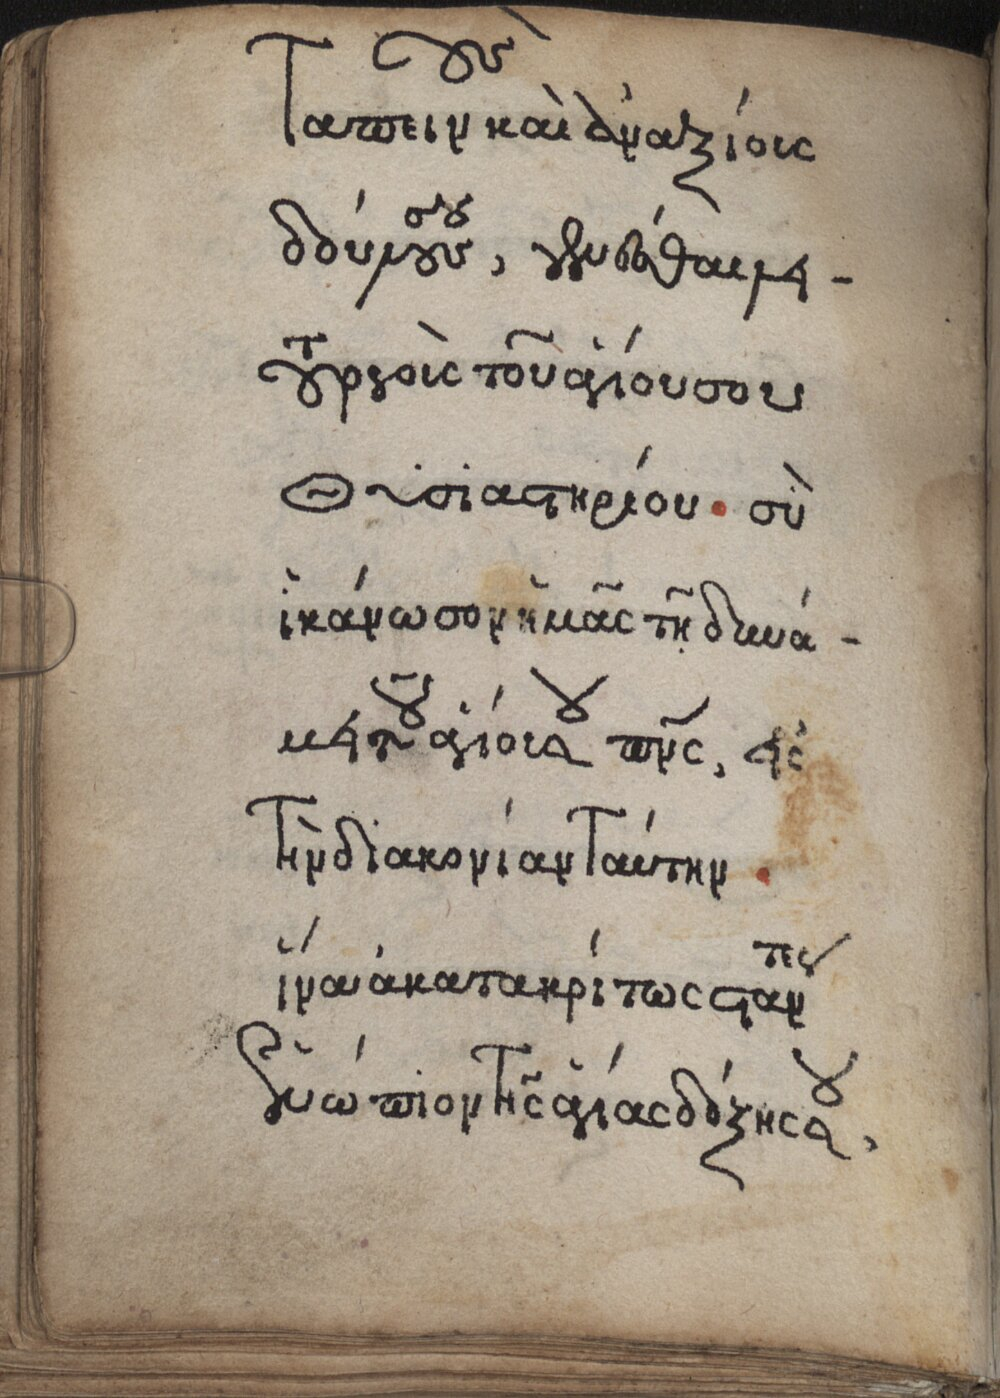 Ταπεινοὺς καὶ ἀναξίοις
δούλους σου, γενέσθαι λει-
τουργοὶς τοῦ ἁγίου σου
Θυσιαστηρίου. σὺ
ἱκάνωσον ἡμᾶς τῇ δυνά-
μει τοῦ ἁγίου σου πν̅ς, εἰς
Τὴν διακονίαν Ταύτην.
ἵνα ἀκατακρίτως σταντες
ἐνώπιον Τῆς ἁγίας δόξης σου,